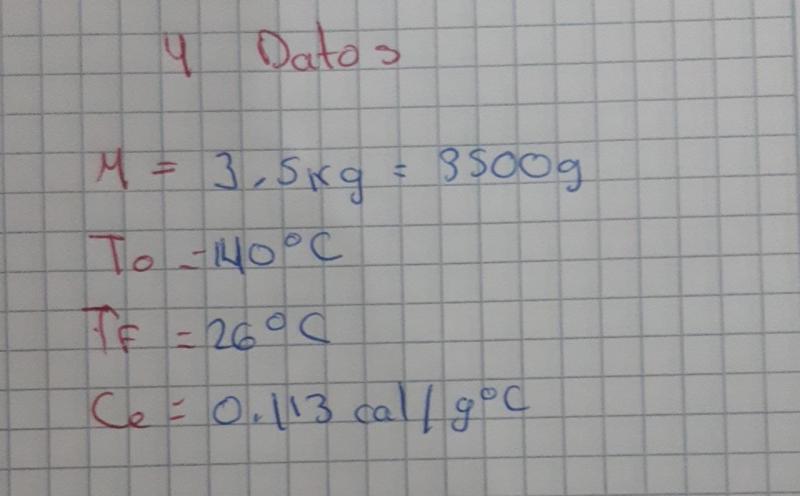 4 Datos
M = 3.5Kg = 3500g
To = 140°C
TF = 26°C
Ce = 0.113 cal/g°C